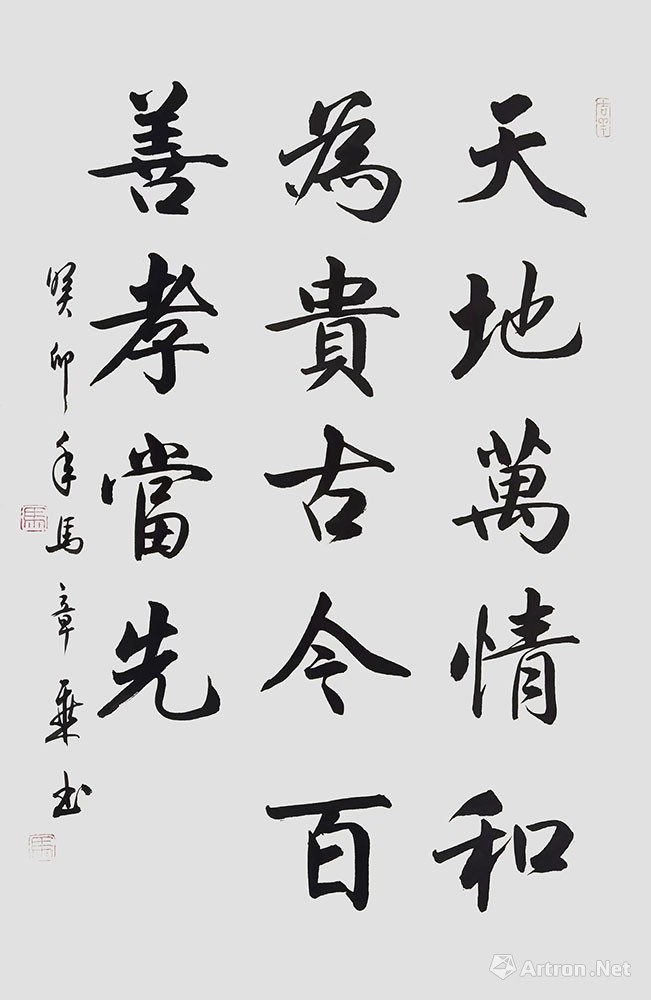 天地萬情和
為貴古今百
善孝當先
癸卯年馬章乘书
馬
Artron.Net